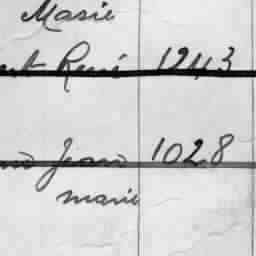 Marie
René 1243
Jean 1028
marie